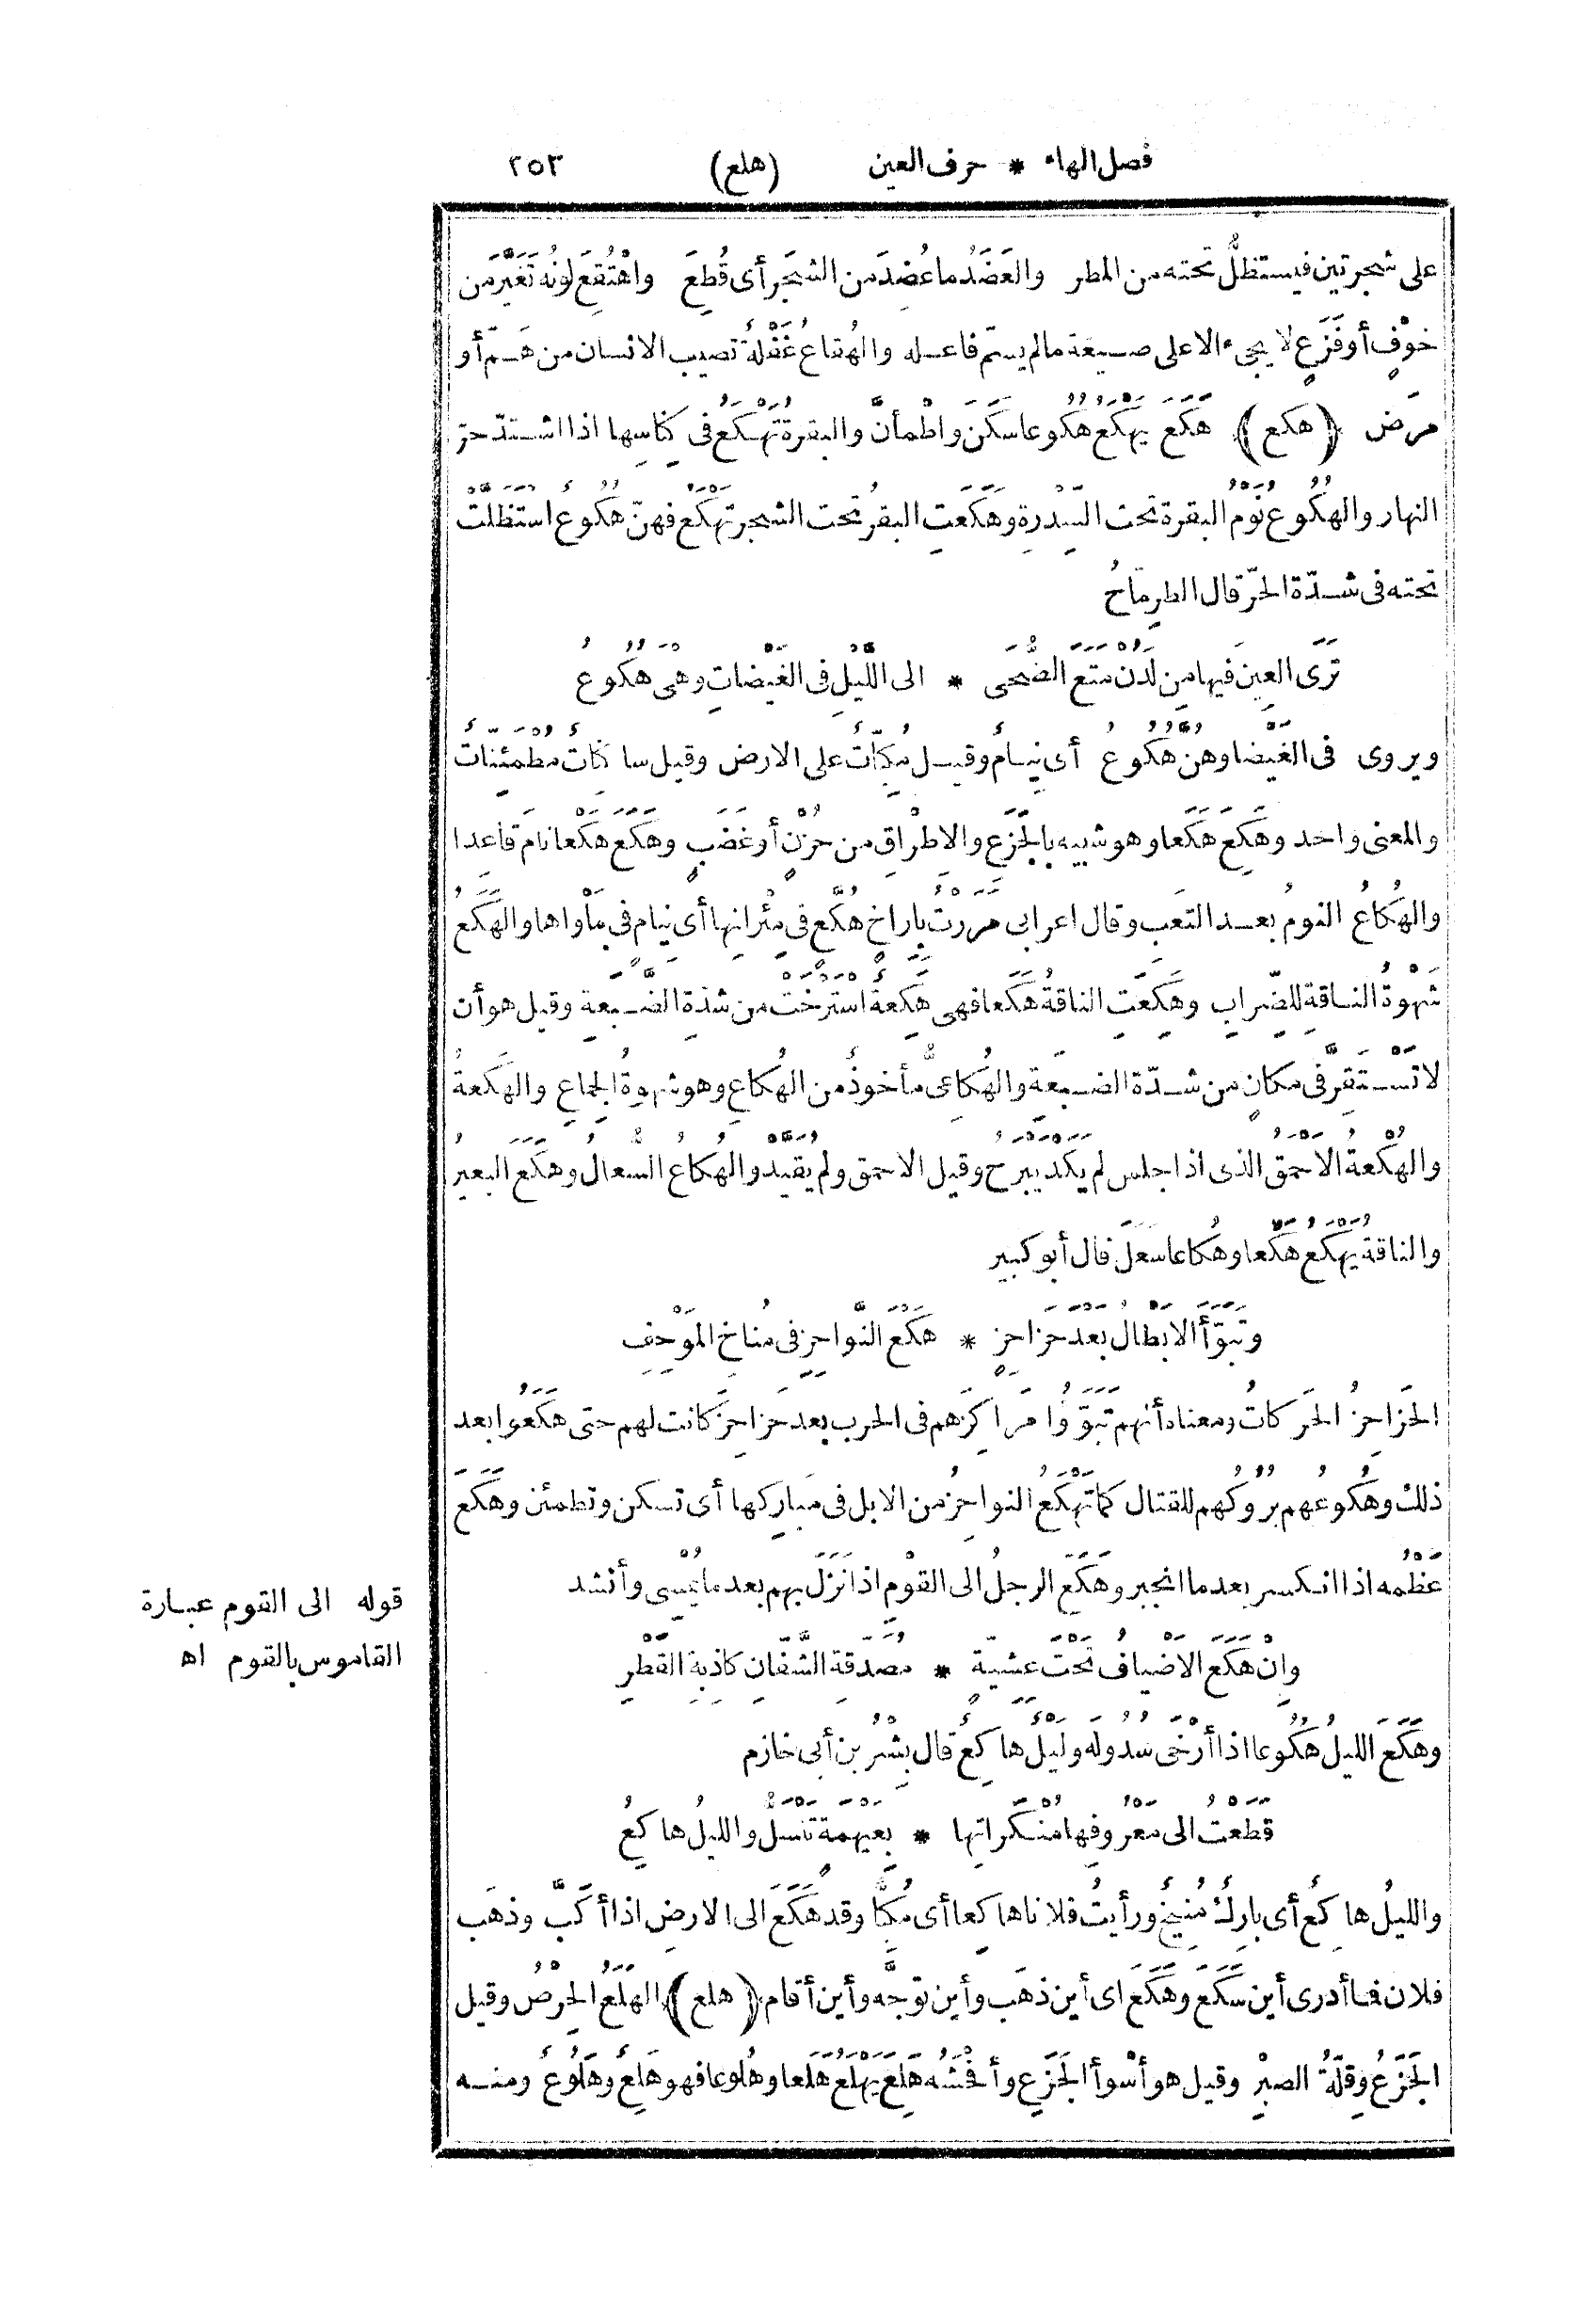 فصل الهاء * حرف العين (هلع) ٢٥٣
على شجرتين فيستظلُّ تحته من المطر والعَضَدُ ما عُضِدَ من الشجَر أى قُطِعَ واهْتُقِعَ لونُه تَغَيَّرَ من
خوْفٍ أو فَزَعٍ لا يجىء الا على صيغة ما لم يسمّ فاعله والهُقاعُ غَفْلةٌ تصيب الانسان من هَمّ أو
مرَض (هكع) هَكَعَ يَهْكَعُ هُكُوعا سكَنَ واطْمأنَّ والبقرةُ تَهْكَعُ فى كِناسِها اذا اشتدّ حرّ
النهار والهكُوعُ نَوْمُ البقرة تحت السِّدْرةِ وهَكَعَتِ البقرُ تحت الشجر تَهْكَعُ فهنّ هُكُوعٌ اسْتَظَلَّتْ
تحته فى شدّة الحرّ قال الطرِمّاحُ
تَرَى العِينَ فيها مِن لَدُنْ مَتَعَ الضُّحَى * الى اللَّيْلِ فى الغَيْضاتِ وهْىَ هُكُوعُ
ويروى فى الغَيْضا وهُنَّ هُكُوعُ أى نِيامٌ وقيل مُكِبّاتٌ على الارض وقيل ساكِناتٌ مطْمَئِنّاتٌ
والمعنى واحد وهَكِعَ هَكَعا وهو شبيه بالجَزَعِ والاِطْراقِ من حُزْنٍ أو غَضَبٍ وهَكَعَ هَكْعا نامَ قاعِدا
والهُكاعُ النومُ بعد التعَبِ وقال اعرابى مَرَرْتُ بإراخٍ هُكَّعٍ فى مِئْرانِها أى نِيام فى مَأْواها والهَكَعُ
شَهْوةُ الناقةِ للضِّرابِ وهَكِعَتِ الناقةُ هَكَعا فهى هَكِعةٌ اسْتَرْخَتْ من شدّةِ الضَّبَعةِ وقيل هو أن
لا تَسْتَقِرَّ فى مكانٍ من شدّة الضبَعةِ والهُكاعىُّ مأخوذٌ من الهُكاعِ وهو شهوةُ الجِماعِ والهَكَعةُ
والهُكْعةُ الاحمَقُ الذى اذا جلس لم يَكَدْ يَبْرَحُ وقيل الاحمق ولم يُقَيَّدْ والهُكاعُ السُّعالُ وهَكَعَ البعيرُ
والناقةُ يَهْكَعُ هَكْعا وهُكاعا سَعَلَ قال أبو كبير
وتَبَوّأَ الابْطالُ بَعْدَ حَزاحِزٍ * هَكْعَ النَّواحِزِ فى مُناخِ المَوْحِفِ
الحَزاحِزُ الحَركاتُ ومعناه أنهم تَبَوَّؤُا مَراكِزَهم فى الحرب بعد حَزاحِزَ كانت لهم حتى هَكَعُوا بعد
ذلك وهُكُوعُهم بُرُوكُهم للقتال كما تَهْكَعُ النواحِزُ من الابل فى مَبارِكها أى تسكن وتطمئن وهَكَعَ
عَظْمُه اذا انكسر بعد ما انجبر وهَكَعَ الرجلُ الى القوْمِ اذا نَزَلَ بهم بعد ما يُمْسِى وأنشد
وإنْ هَكَعَ الاَضْيافُ تَحْتَ عَشيّةٍ * مُصَدِّقةِ الشَّفّانِ كاذِبةِ القَطْرِ
وهَكَعَ الليلُ هُكُوعا اذا أرْخَى سُدُولَه ولَيْلٌ هاكِعٌ قال بِشْرُ بن أبى خازم
قَطَعْتُ الى مَعْرُوفِها مُنْكَراتِها * بِعَيْهَمةٍ تَنْسَلُّ والليلُ هاكِعُ
والليلُ هاكِعٌ أى بارِكٌ مُنِيخٌ ورأيتُ فلانا هاكِعا أى مُكِبًّا وقد هَكَعَ الى الارضِ اذا أكَبَّ وذهَب
فلان فما أدرى أين سَكَعَ وهَكَعَ اى أين ذهَب وأين توجَّه وأين أقام (هلع) الهَلَعُ الحِرْصُ وقيل
الجَزَعُ وقِلّةُ الصبْرِ وقيل هو أسْوأُ الجَزَعِ وأفْحَشُه هَلِعَ يَهْلَعُ هَلَعا وهُلوعا فهو هَلِعٌ وهَلُوعٌ ومنه
قوله الى القوم عبارة
القاموس بالقوم اه